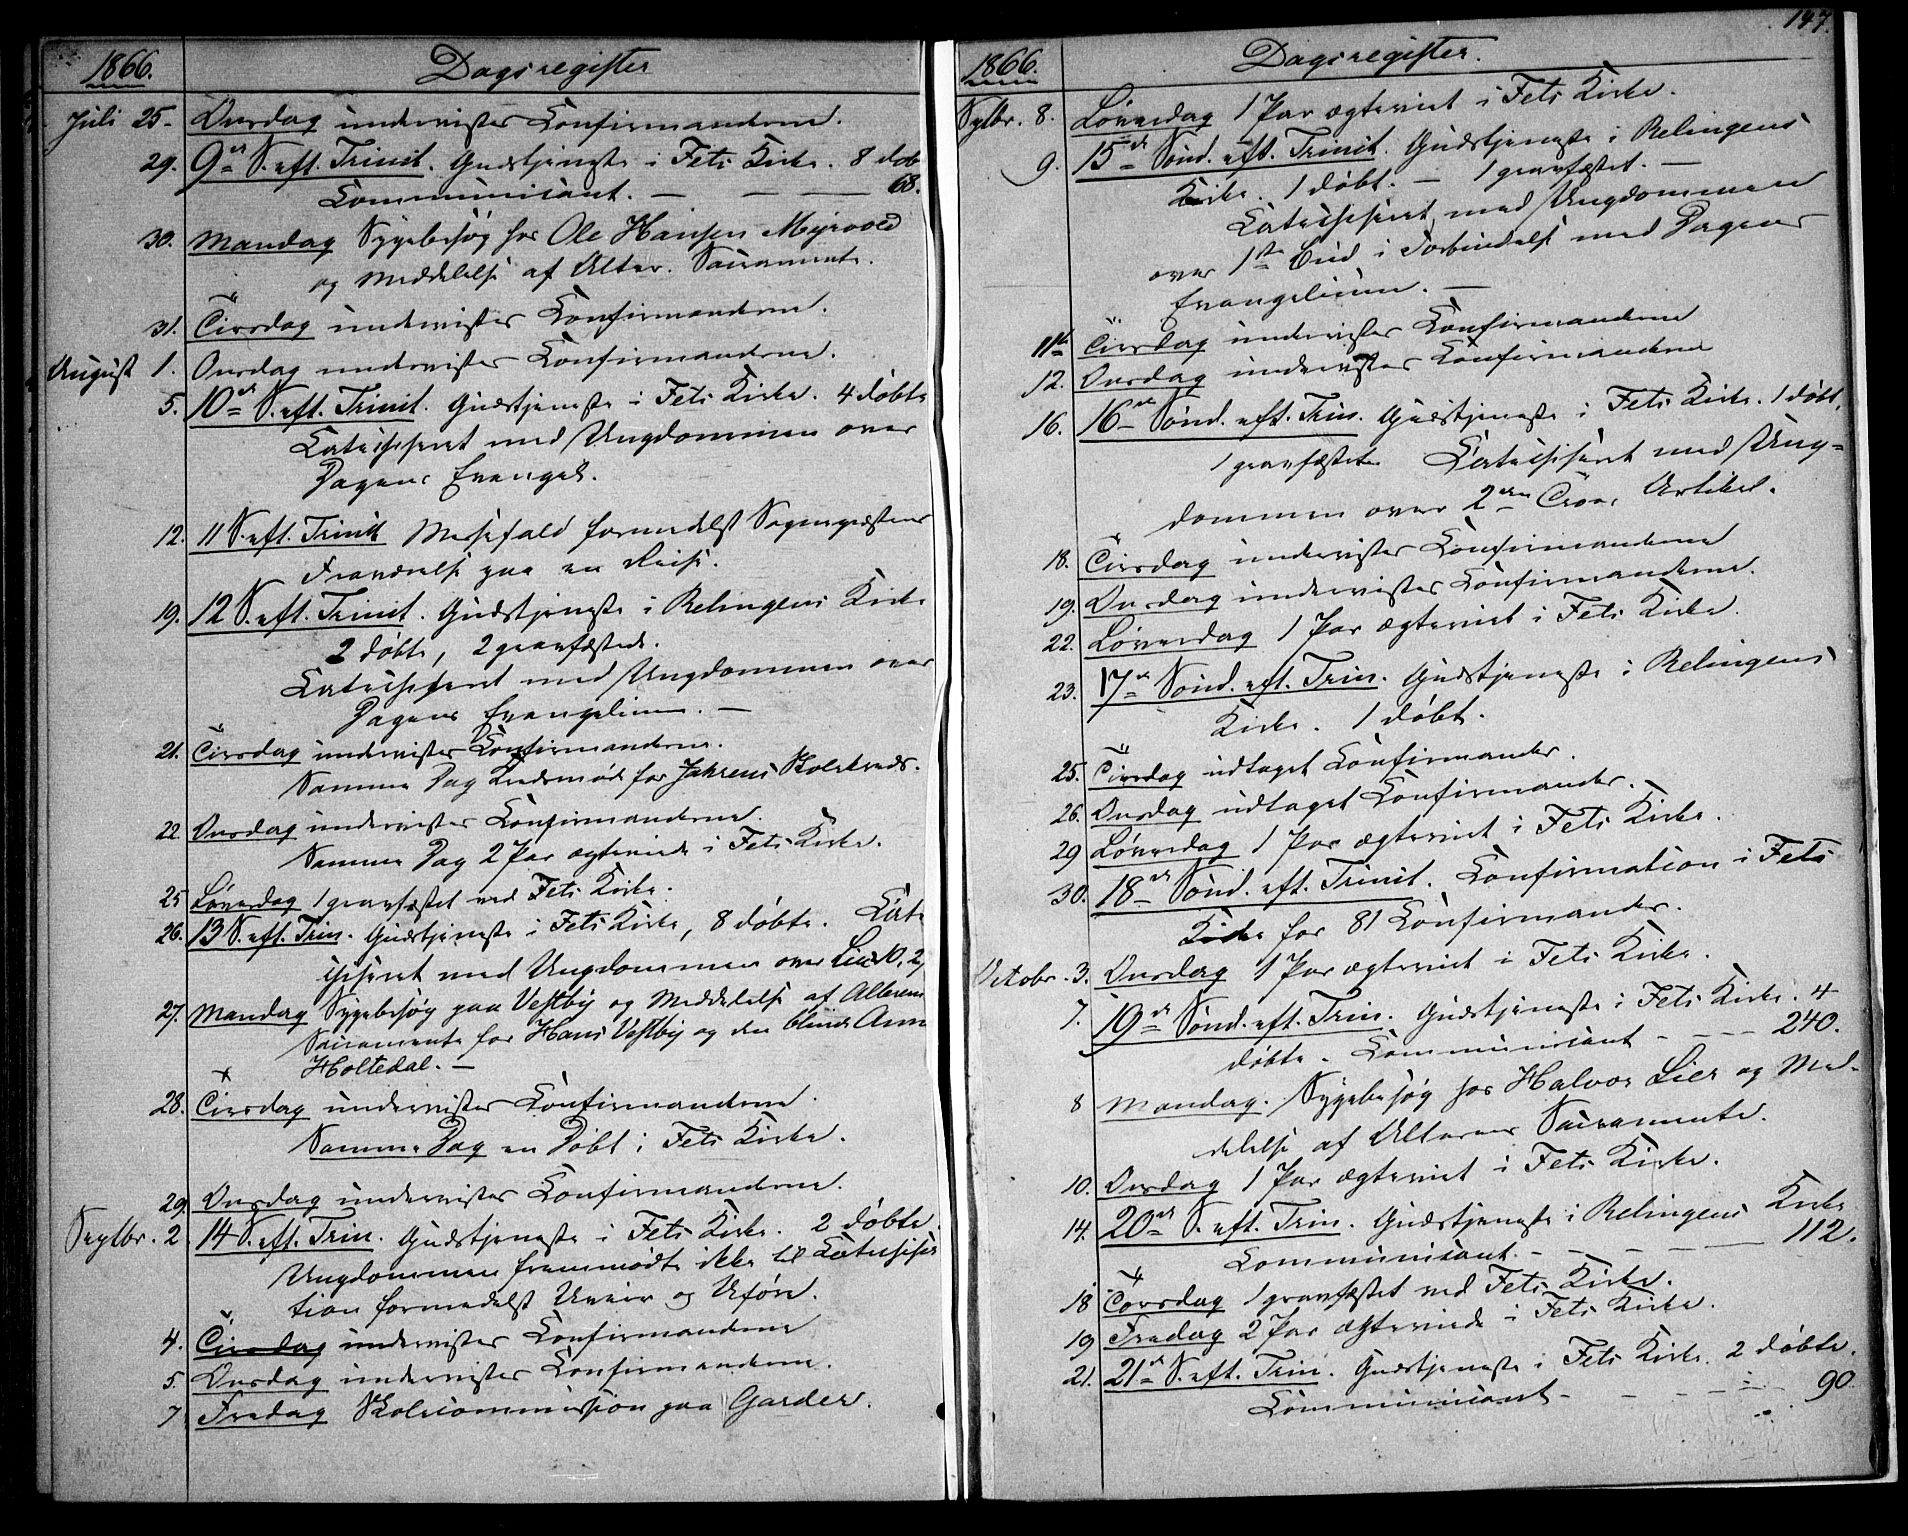 1866.
Dagsregister
Juli 25. Onsdag underviistes Confirmanderne.
29. 9de S. eft. Trinit. Gudstjeneste i Fets Kirke. 8 døb
Communicant. — — — 68.
30. Mandag Sygebesøg hos Ole Hansen Myrvold
og Meddelelse af Alter. Sacramente.
31. Tirsdag underviistes Confirmanderne.
August 1. Onsdag underviistes Confirmanderne.
5. 10de S. eft. Trinit. Gudstjeneste i Fets Kirke. 4 døbte
Catechiseret med Ungdommen over
Dagens Evangel.
12. 11 S. eft. Trinit Messefald formedelst Sognepræstens
Fraværelse paa en Reise.
19. 12 S. eft. Trinit. Gudstjeneste i Relingens Kirke
2 døbte, 2 gravfæstede.
Catechiseret med Ungdommen over
Dagens Evangelium. —
21. Tirsdag underviistes Confirmanderne.
Samme Dag Kredsmøde for Jahrens Skolekreds.
22. Onsdag underviistes Confirmanderne.
Samme Dag 2 Par ægteviede i Fets Kirke.
25 Løverdag 1 gravfæstet ved Fets Kirke.
26. 13 S. eft. Trin. Gudstjeneste i Fets Kirke, 8 døbte. Cate
chiseret med Ungdommen over
27. Mandag Sygebesøg paa Vestby og Meddelelse af Alterens
Sacramente for Hans Vestby og den blinde Anne
Holtedal. —
28. Tirsdag underviistes Confirmanderne.
Samme Dag en Døbt i Fets Kirke.
29. Onsdag underviistes Confirmanderne.
Septbr. 2 14 S. eft. Trin. Gudstjeneste i Fets Kirke. 2 døbte.
Ungdommen fremmødte ikke til Catechisa
tion formedelst Uveir og Uføre.
4. Tirsdag underviistes Confirmanderne
5. Onsdag underviistes Confirmanderne.
7 Fredag Skolecommission paa Garder.
147.
1866.
Dagsregister.
Septbr. 8. Løverdag 1 Par ægteviet i Fets Kirke.
9. 15de Sønd. eft. Trinit. Gudstjeneste i Relingens
Kirke. 1 døbt. — 1 gravfæstet. —
Catechiseret med Ungdommen
over 1ste Bud i Forbindelse med Dagens
Evangelium. —
11te Tirsdag underviistes Confirmanderne
12. Onsdag underviistes Confirmanderne
16. 16de Sønd. eft. Trin. Gudstjeneste i Fets Kirke. 1 døbt,
1 gravfæstet. Catechiseret med Ung-
dommen over 2den Troes Artikel.
18. Tirsdag underviistes Confirmanderne
19. Onsdag underviistes Confirmanderne.
22. Løverdag 1 Par ægteviet i Fets Kirke.
23. 17de Sønd. eft. Trin. Gudstjeneste i Relingens
Kirke. 1 døbt.
25. Tirsdag udtaget Confirmander.
26. Onsdag udtaget Confirmander.
29 Løverdag 1 Par ægteviet i Fets Kirke.
30. 18de Sønd. eft. Trinit. Confirmation i Fets
Kirke for 81 Confirmander.
Octobr. 3. Onsdag 1 Par ægteviet i Fets Kirke.
7. 19de Sønd. eft. Trin. Gudstjeneste i Fets Kirke. 4
døbte. Communicant — — — 240.
8 Mandag. Sygebesøg hos Halvor Lier og Med-
delelse af Alterens Sacramente.
10. Onsdag 1 Par ægteviet i Fets Kirke.
14. 20de S. eft. Trin. Gudstjeneste i Relingens Kirke
Communicant. — — — 112.
18 Torsdag 1 gravfæstet ved Fets Kirke.
19 Fredag 2 Par ægteviede i Fets Kirke.
21. 21de S. eft. Trin. Gudstjeneste i Fets Kirke. 2 døbte.
Communicant — — — 90